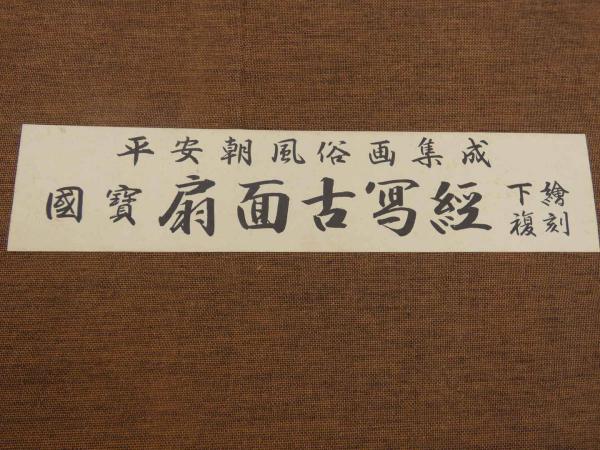 平安朝風俗画集成
國寶 扇面古冩經 下繪
複刻